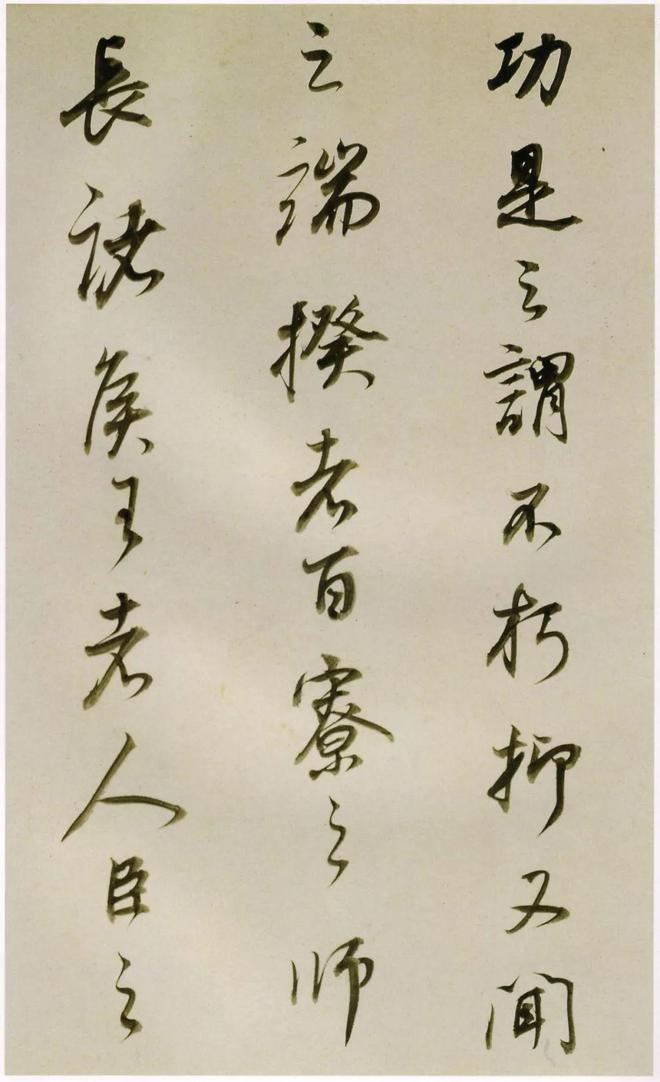 功是之謂不朽抑又聞
之端揆者百寮之師
長諸侯王者人臣之